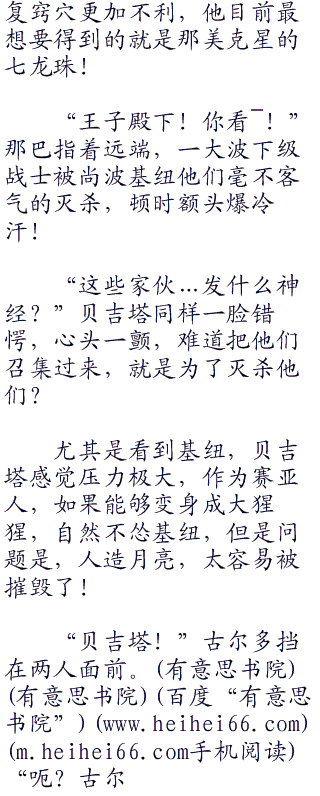 复窍穴更加不利，他目前最
想要得到的就是那美克星的
七龙珠！
“王子殿下！你看¯！”
那巴指着远端，一大波下级
战士被尚波基纽他们毫不客
气的灭杀，顿时额头爆冷
汗！
“这些家伙…发什么神
经？”贝吉塔同样一脸错
愕，心头一颤，难道把他们
召集过来，就是为了灭杀他
们？
尤其是看到基纽，贝吉
塔感觉压力极大，作为赛亚
人，如果能够变身成大猩
猩，自然不怂基纽，但是问
题是，人造月亮，太容易被
摧毁了！
“贝吉塔！”古尔多挡
在两人面前。(有意思书院)
(有意思书院)(百度“有意思
书院”)(www.heihei66.com)
(m.heihei66.com手机阅读)
“呃？古尔